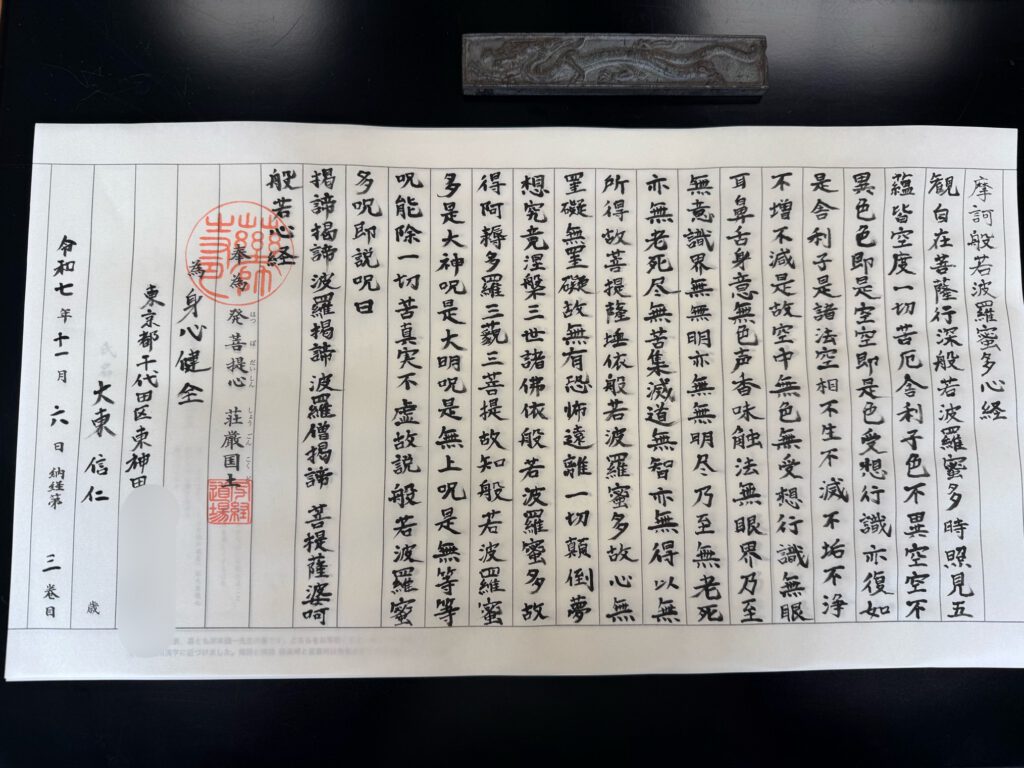 摩訶般若波羅蜜多心経
観自在菩薩行深般若波羅蜜多時照見五
蘊皆空度一切苦厄舎利子色不異空空不
異色色即是空空即是色受想行識亦復如
是舎利子是諸法空相不生不滅不垢不浄
不増不減是故空中無色無受想行識無眼
耳鼻舌身意無色声香味触法無眼界乃至
無意識界無無明亦無無明尽乃至無老死
亦無老死尽無苦集滅道無智亦無得以無
所得故菩提薩埵依般若波羅蜜多故心無
罣礙無罣礙故無有恐怖遠離一切顛倒夢
想究竟涅槃三世諸佛依般若波羅蜜多故
得阿耨多羅三藐三菩提故知般若波羅蜜
多是大神呪是大明呪是無上呪是無等等
呪能除一切苦真実不虚故説般若波羅蜜
多呪即説呪曰
掲諦掲諦 波羅掲諦 波羅僧掲諦 菩提薩婆呵
般若心経
奉為 発菩提心 荘厳国土
ほつ ぼ だいしん しょう ごん こく ど
為 身心健全
東京都千代田区東神田
大東 信仁 歳
令和七年十一月六日 納経第 三 巻目